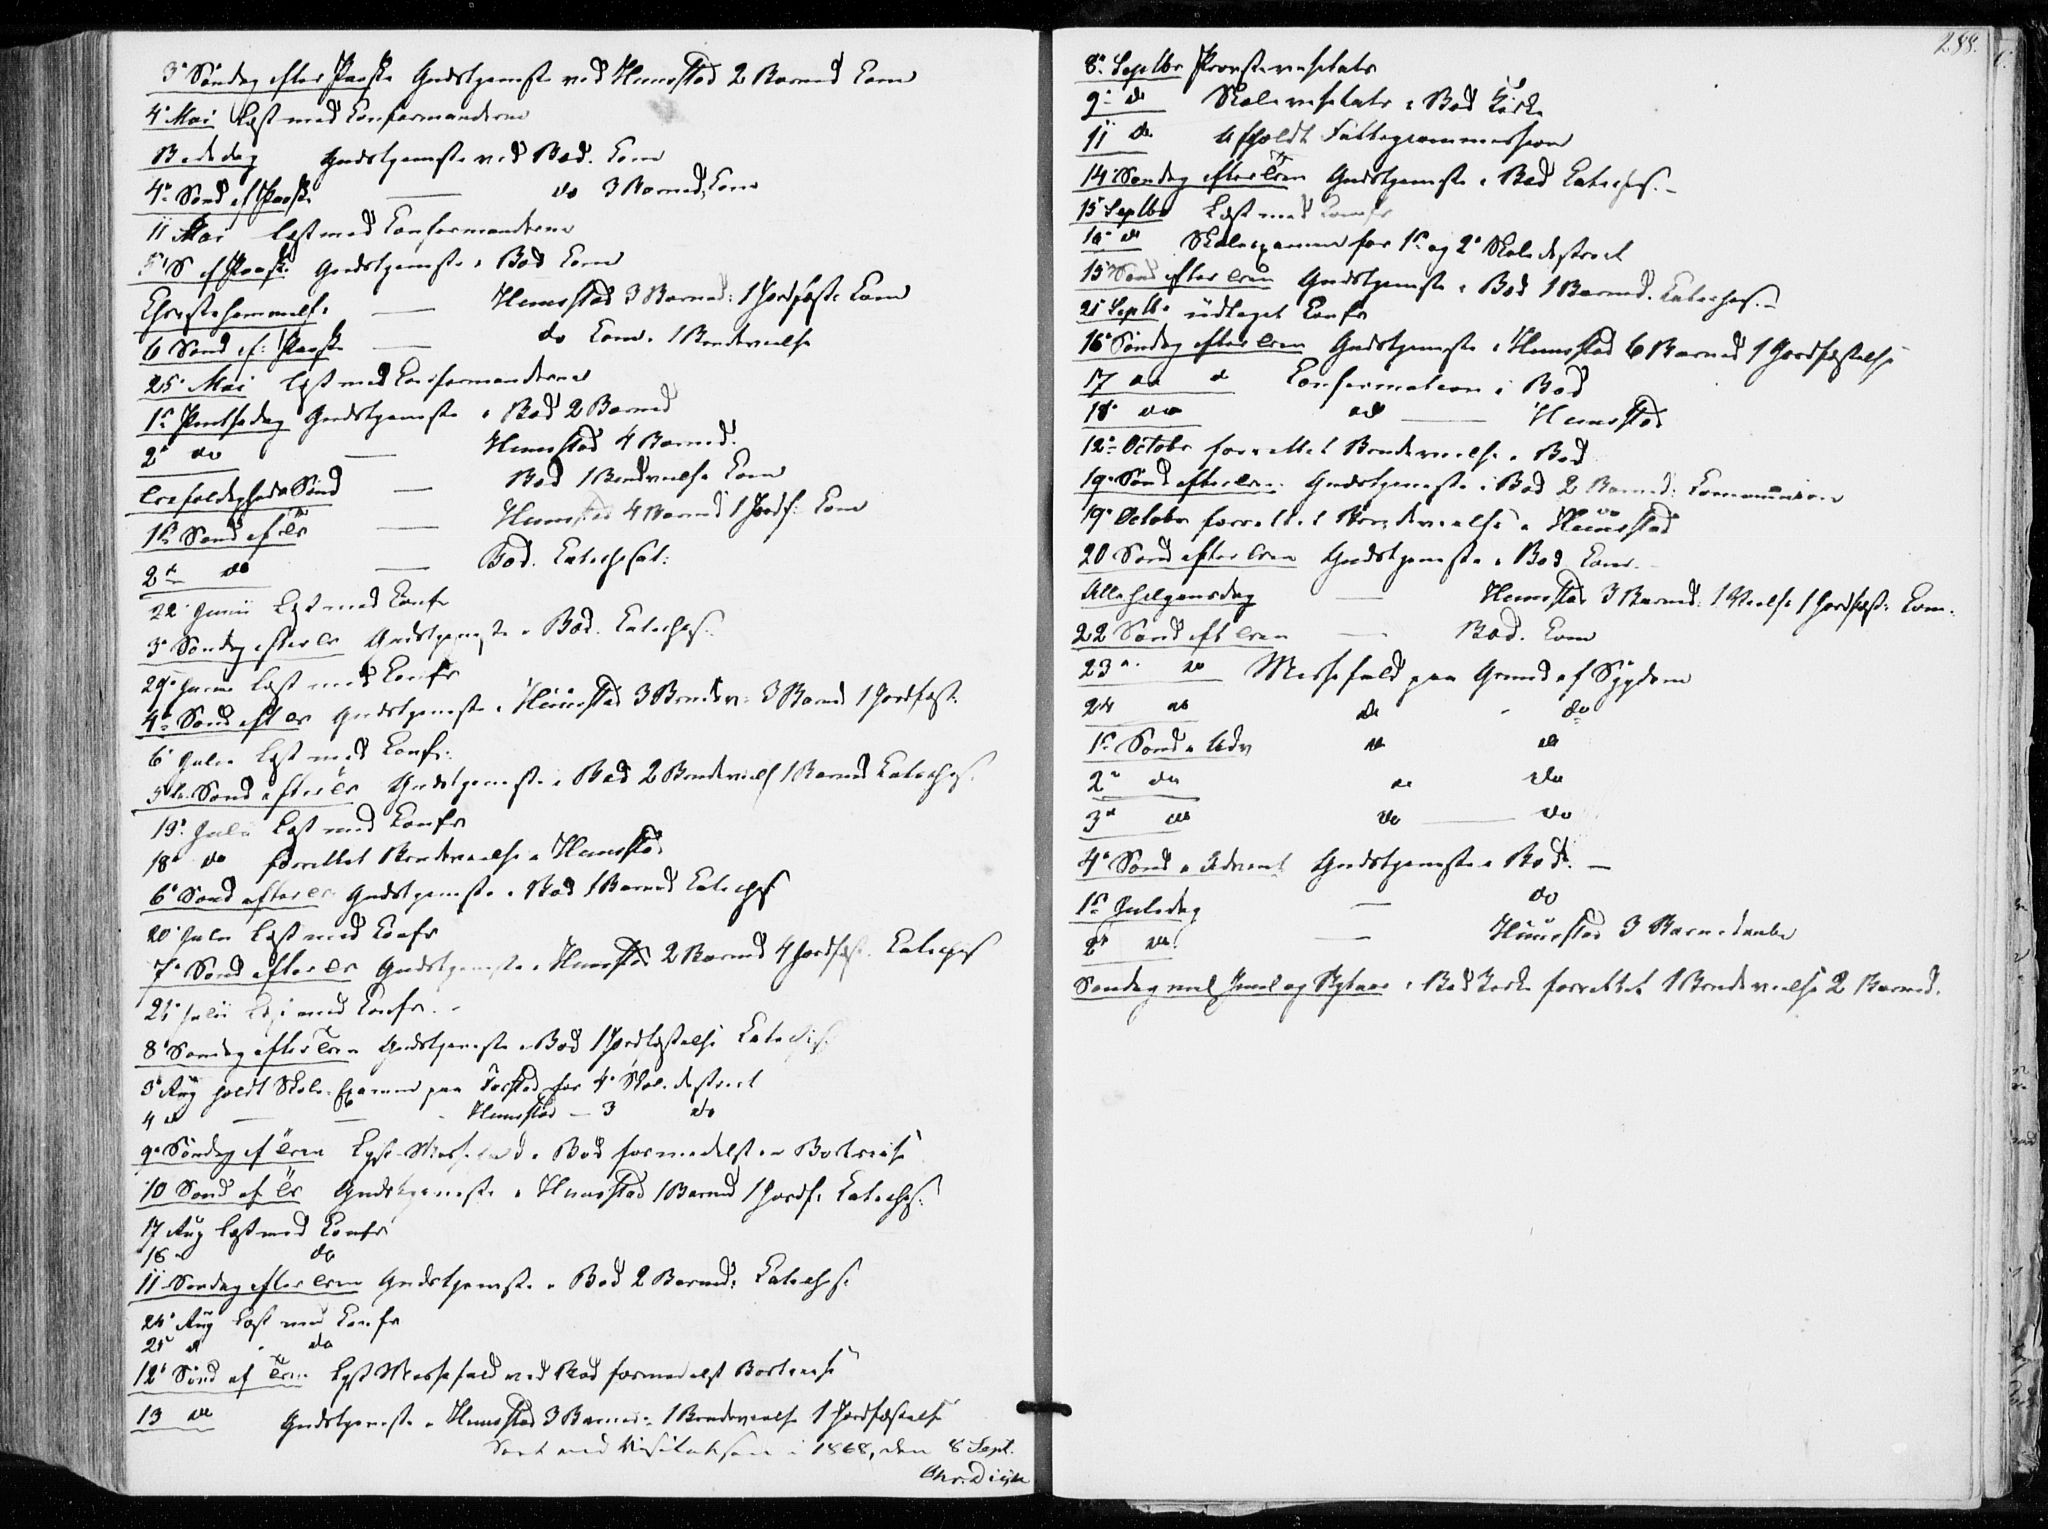 3' Søndag efter Paaske Gudstjeneste ved Hunstad 2 Barned Com
4' Mai Læst med Confirmanderne
Bededag Gudstjeneste ved Bod. Com
4' Sønd ef Paaske — do 3 Barned, Com
11 Mai læst med Confirmanderne
5' S ef Paask. Gudstjeneste i Bod Com
Christihimmelf. — Hunstad 3 Barned: 1 Jordfæst. Com
6 Sønd ef: Paaske — do Com. 1 Brudevielse
25' Mai læst med Confirmanderne
1ste Pintsedag Gudstjeneste i Bod 2 Barned
2' do — Hunstad 4 Barned.
Trefoldigheds Sønd — Bod 1 Brudvielse Com
1ste Sønd ef Tr — Hunstad 4 Barned 1 Jordf: Com
2' do — Bod. Catechisat:
22' Junii Læst med Confr
3' Søndag efter Tr Gudstjeneste i Bod. Cateches.
29' Junii Læst med Confr
4' Sønd eft Tr Gudstjeneste i Hunstad 3 Brudev: 3 Barned 1 Jordfæst.
6' Julii Læst med Confr:
5te Sønd efter Tr Gudstjeneste i Bod 2 Brudeviels 1 Barned Cateches.
13' Julii Læst med Confr
18' do forrettet Brudevielse i Hunstad
6' Sønd efter Tr Gudstjeneste i Bod 1 Barned Cateches
20' Julii Læst med Confr
7' Sønd efter Tr Gudstjeneste i Hunstad 2 Barned 4 Jordfæst. Cateches
Julii Læst med Confr. -
8' Søndag efter Tren Gudstjeneste i Bod 1 Jordfæstelse Cateches.
3' Aug holdt Skole-Examen paa for 4' Skoledistrict
4 d — — Hunstad — 3 do
9' Søndag ef Tren Lyst Messefald i Bod formedelst Bortreise
10 Sønd ef Tr Gudstjeneste i Hunstad 1 Barned 1 Jordf: Cateches:
17 Aug læst med Confr
18 do
11 Søndag efter Tren Gudstjeneste i Bod 2 Barned: Cateches.
24' Aug Læst med Confr
25 d do
12' Sønd ef Tren Lyst Messefald ved Bod formedelst Bortreise
13 do Gudstjeneste i Hunstad 3 Barned: 1 Brudevielse 1 Jordfæstelse
Seet ved Visitatsen i 1868, den 8 Sept.
288.
8' Septbr Provstevisitats
9' do Skolevisitats i Bod Kirke
11 do Afholdt Fattigcommission
14' Søndag efter Tren Gudstjeneste i Bod Cateches. -
15' Septbr Læst med Confr
16' d Skoleexamen for 1ste og 2' Skoledistrict
15' Sønd efter Tren Gudstjeneste i Bod 1 Barned. Cateches. -
21' Septb. udtaget Confr
16' Søndag efter Tren Gudstjeneste i Hunstad 6 Barned 1 Jordfæstelse
17 do d Confirmation i Bod
18' do do — Hunstad
12' Octobr forrettet Brudevielse i Bod
19' Sønd efter Tren Gudstjeneste i Bod 2 Barned: Communion
19' Octobr forrettet Brudevielse i Hunstad
20 Sønd efter Tren Gudstjeneste i Bod Com. -
Allehelgensdag — Hunstad 3 Barned: 1 Vielse 1 Jordfæst: Com.
22 Sønd eft Tren — Bod. Com
23' do Messefald paa Grund af Sygdom
24 do do - do
1ste Sønd i Adv do do
2' do do do
3' do do — do
4' Sønd i Advent Gudstjeneste i Bod. —
1ste Juledag — do
2' do. — Hunstad 3 Barnedaabe
Søndag ml Juul og Nytaar i Bod Kirke forrettet 1 Brudevielse 2 Barned.